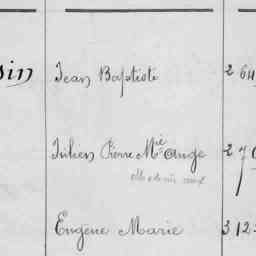 sin Jean Baptiste 2 64
Julien Pierre Mie Ange 2 7
Eugène Marie 3 12